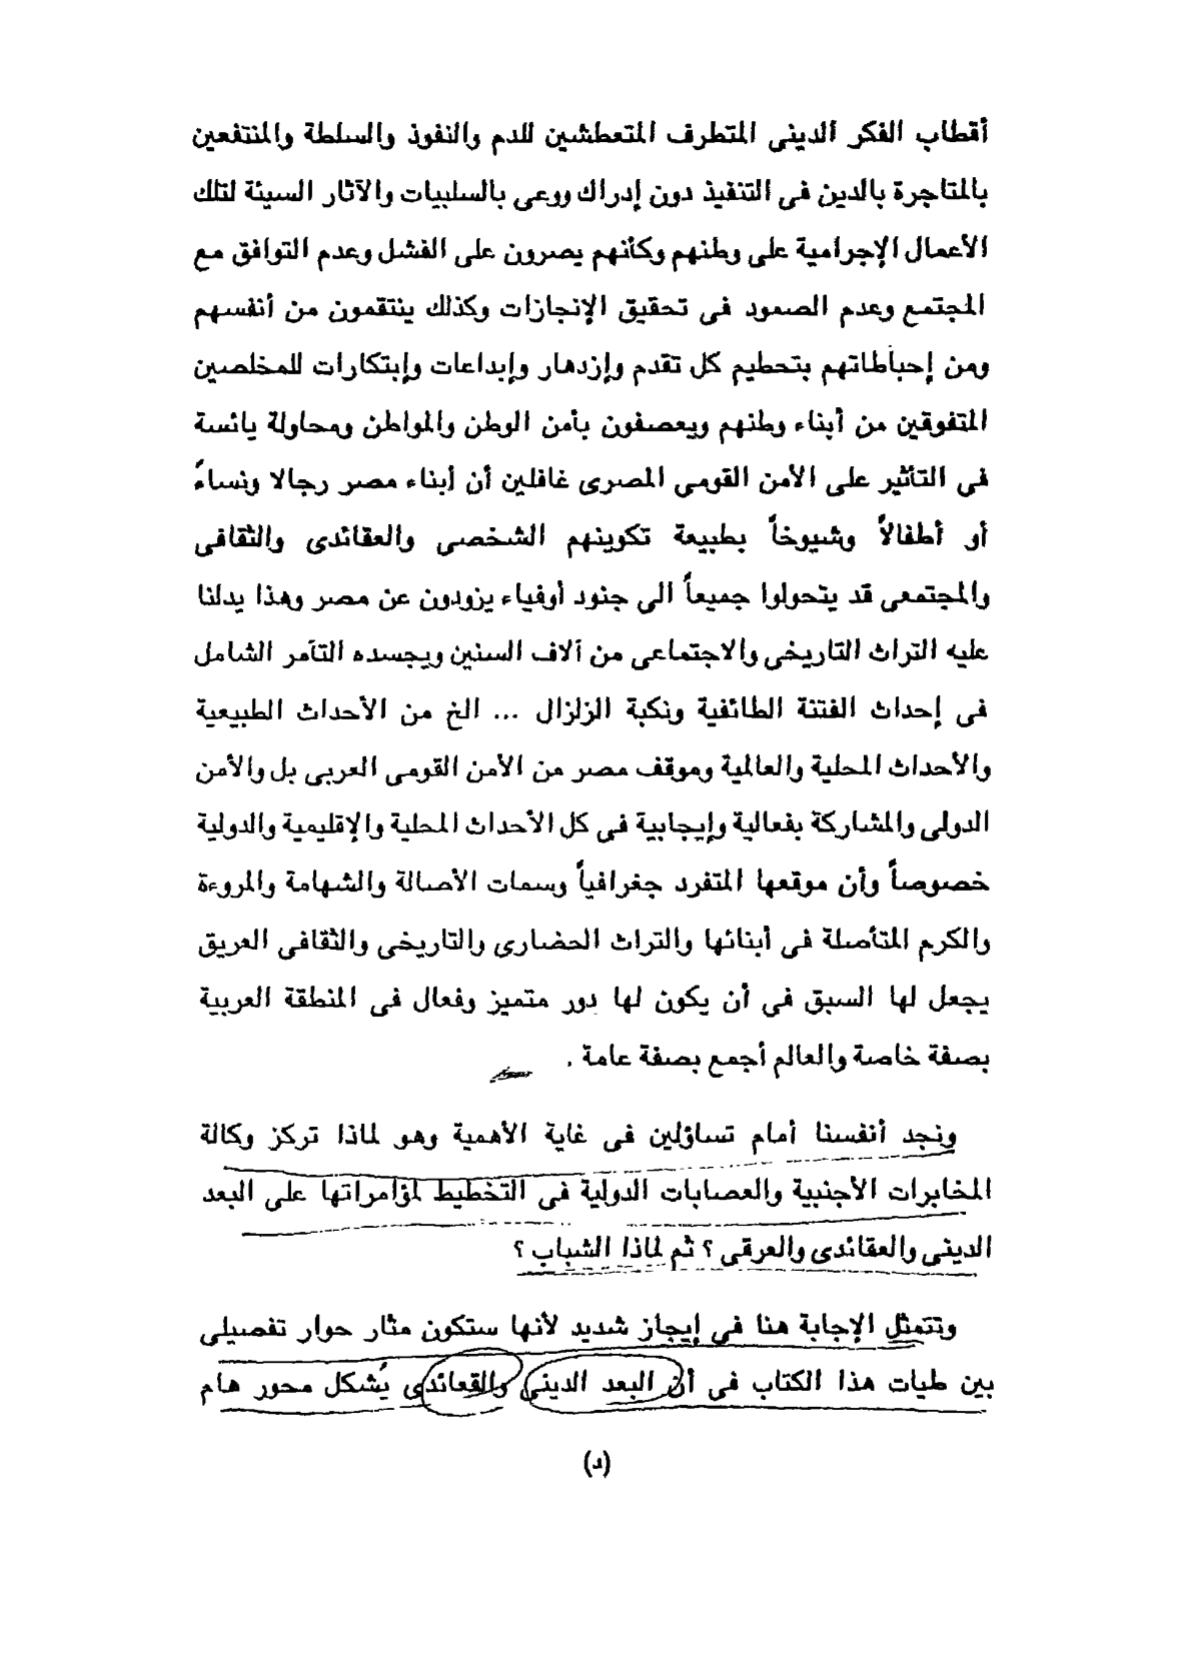 أقطاب الفكر الدينى المتطرف المتعطشين للدم والنفوذ والسلطة والمنتفعين
بالمتاجرة بالدين فى التنفيذ دون إدراك ووعى بالسلبيات والآثار السيئة لتلك
الأعمال الإجرامية على وطنهم وكأنهم يصرون على الفشل وعدم التوافق مع
المجتمع وعدم الصمود فى تحقيق الإنجازات وكذلك ينتقمون من أنفسهم
ومن إحباطاتهم بتحطيم كل تقدم وإزدهار وإبداعات وإبتكارات للمخلصين
المتفوقين من أبناء وطنهم ويعصفون بأمن الوطن والمواطن ومحاولة يائسة
فى التأثير على الأمن القومى المصرى غافلين أن أبناء مصر رجالا ونساءً
أو أطفالاً وشيوخاً بطبيعة تكوينهم الشخصى والعقائدى والثقافى
والمجتمعى قد يتحولوا جميعاً الى جنود أوفياء يزودون عن مصر وهذا يدلنا
عليه التراث التاريخى والاجتماعى من آلاف السنين ويجسده التآمر الشامل
فى إحداث الفتنة الطائفية ونكبة الزلزال ... الخ من الأحداث الطبيعية
والأحداث المحلية والعالمية وموقف مصر من الأمن القومى العربى بل والأمن
الدولى والمشاركة بفعالية وإيجابية فى كل الأحداث المحلية والإقليمية والدولية
خصوصاً وأن موقعها المتفرد جغرافياً وسمات الأصالة والشهامة والمروءة
والكرم المتأصلة فى أبنائها والتراث الحضارى والتاريخى والثقافى العريق
يجعل لها السبق فى أن يكون لها دور متميز وفعال فى المنطقة العربية
بصفة خاصة والعالم أجمع بصفة عامة .
ونجد أنفسنا أمام تساؤلين فى غاية الأهمية وهو لماذا تركز وكالة
المخابرات الأجنبية والعصابات الدولية فى التخطيط لمؤامراتها على البعد
الدينى والعقائدى والعرقى ؟ ثم لماذا الشباب ؟
وتتمثل الإجابة هنا فى إيجاز شديد لأنها ستكون مثار حوار تفصيلى
بين طيات هذا الكتاب فى أن البعد الدينى والقعائدى يُشكل محور هام
(د)